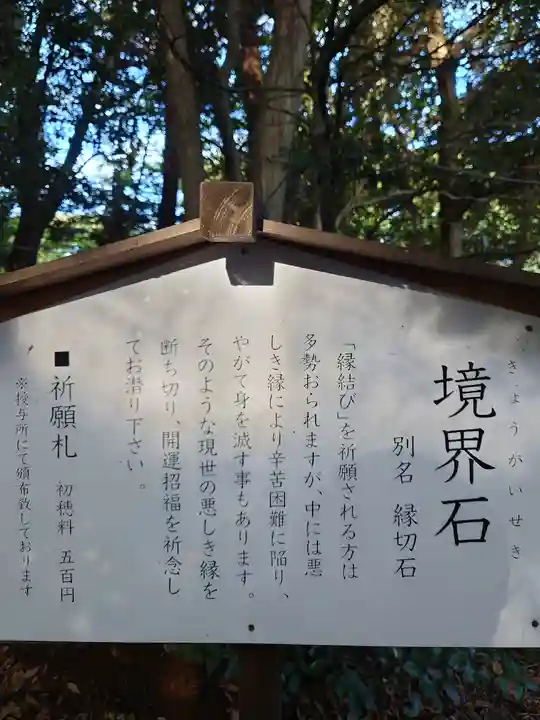 きょうがいせき
境界石
別名 縁切石
「縁結び」を祈願される方は
多勢おられますが、中には悪
しき縁により辛苦困難に陥り、
やがて身を滅す事もあります。
そのような現世の悪しき縁を
断ち切り、開運招福を祈念し
てお潜り下さい。
■祈願札 初穂料 五百円
※授与所にて頒布致しております